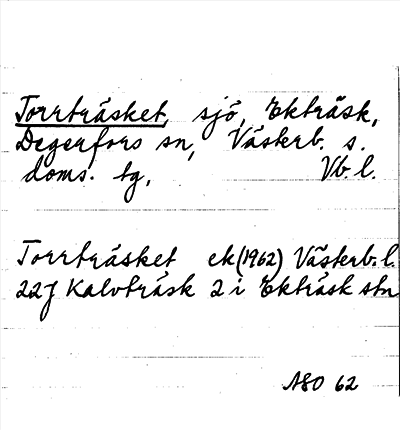 Torrträsket, sjö, Ekträsk,
Degerfors sn, Västerb. s.
doms. tg, Vb. l.
Torrträsket ek (1962) Västerb. l.
22J Kalvträsk 2 i Ekträsk stn
ASO 62